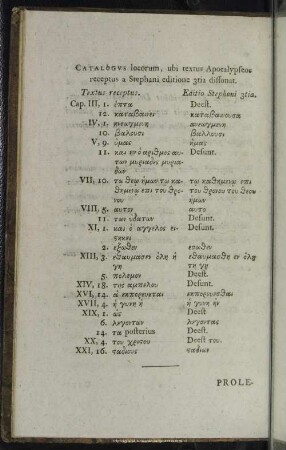 CATALOGVS locorum, ubi textus Apocalypseos
receptus a Stephani editione 3tia dissonat.
Textus receptus. Editio Stephani 3tia.
Cap. III, 1. ἑπτα Deest.
12. καταβαινει καταβαινουσα
IV, 1.
10. βαλουσι βαλλουσι
V, 9. ὑμας ἡμας
11. και ην ὁ αριθμος αυ- Desunt.
των μυριαδες μυρια-
δων
VII, 10. τω θεω ἡμων τω κα- τω καθημενω επι
θημενω επι του θρο- του θρονου του θεου
νου ἡμων
VIII, 5. αυτον αυτο
11. των υδατων Desunt.
XI, 1. και ὁ αγγελος ει- Desunt.
στηκει
2. εξωθεν εσωθεν
XIII, 3. εθαυμασεν ὁλη ἡ εθαυμασθη εν ὁλη
γη τη γη
5. πολεμον Deest.
XIV, 18. της αμπελου Desunt.
XVI, 14. ἁ εκπορευεται εκπορευεσθαι
XVII, 4. ἡ γυνη ἡ ἡ γυνη ην
XIX, 1. ὡς Deest
6. λεγοντων λεγοντας
14. τα posterius Deest.
XX, 4. του χριστου Deest του.
XXI, 16. σταδιων
PROLE-